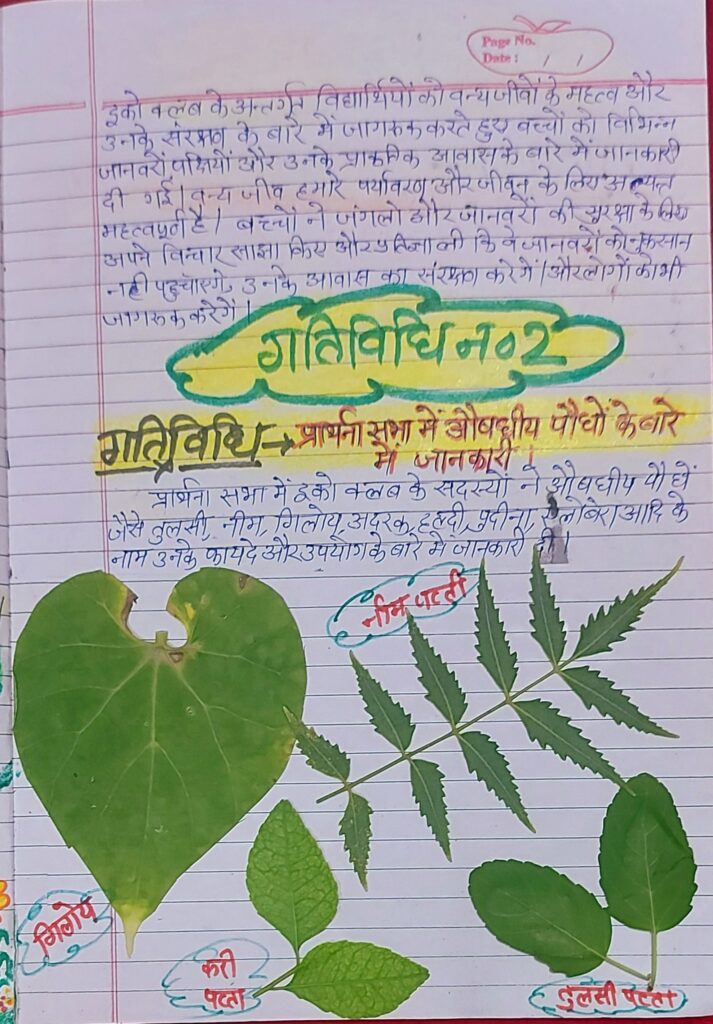 Page No.
Date : / /
इको क्लब के अन्तर्गत विद्यार्थियों को वन्य जीवों के महत्व और
उनके संरक्षण के बारे में जागरूक करते हुए बच्चों को विभिन्न
जानवरों, पक्षियों और उनके प्राकृतिक आवास के बारे में जानकारी
दी गई। वन्य जीव हमारे पर्यावरण और जीवन के लिए अत्यन्त
महत्वपूर्ण है। बच्चों ने जंगलो और जानवरों की सुरक्षा के लिए
अपने विचार साझा किए और प्रतिज्ञा ली कि वे जानवरों को नुकसान
नही पहुचाएगे, उनके आवास का संरक्षण करेगें। और लोगों को भी
जागरूक करेगें।
गतिविधि न० 2
गतिविधि → प्रार्थना सभा में औषधीय पौधों के बारे
में जानकारी।
प्रार्थना सभा में इको क्लब के सदस्यों ने औषधीय पौधें
जैसे तुलसी, नीम, गिलोय, अदरक, हल्दी, पुदीना, एलोबेरा आदि के
नाम उनके फायदे और उपयोग के बारे में जानकारी दी।
नीम पत्ती
गिलोय
करी
पत्ता
तुलसी पत्ता